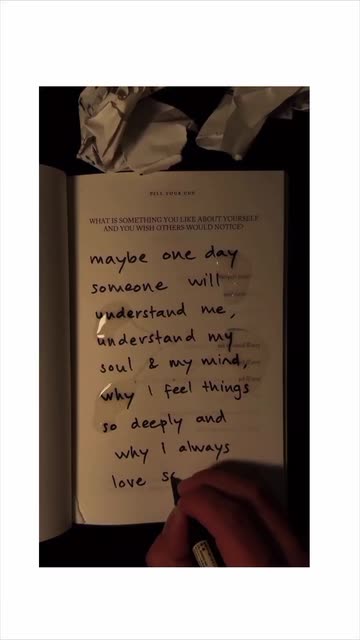 FILL YOUR CUP
WHAT IS SOMETHING YOU LIKE ABOUT YOURSELF
AND YOU WISH OTHERS WOULD NOTICE?
maybe one day
someone will
understand me,
understand my
soul & my mind,
why I feel things
so deeply and
why I always
love so